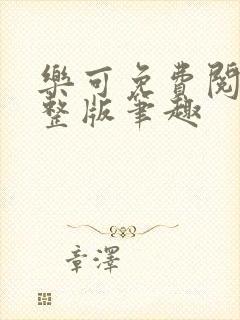 樂可免費閱
整版筆趣
章澤